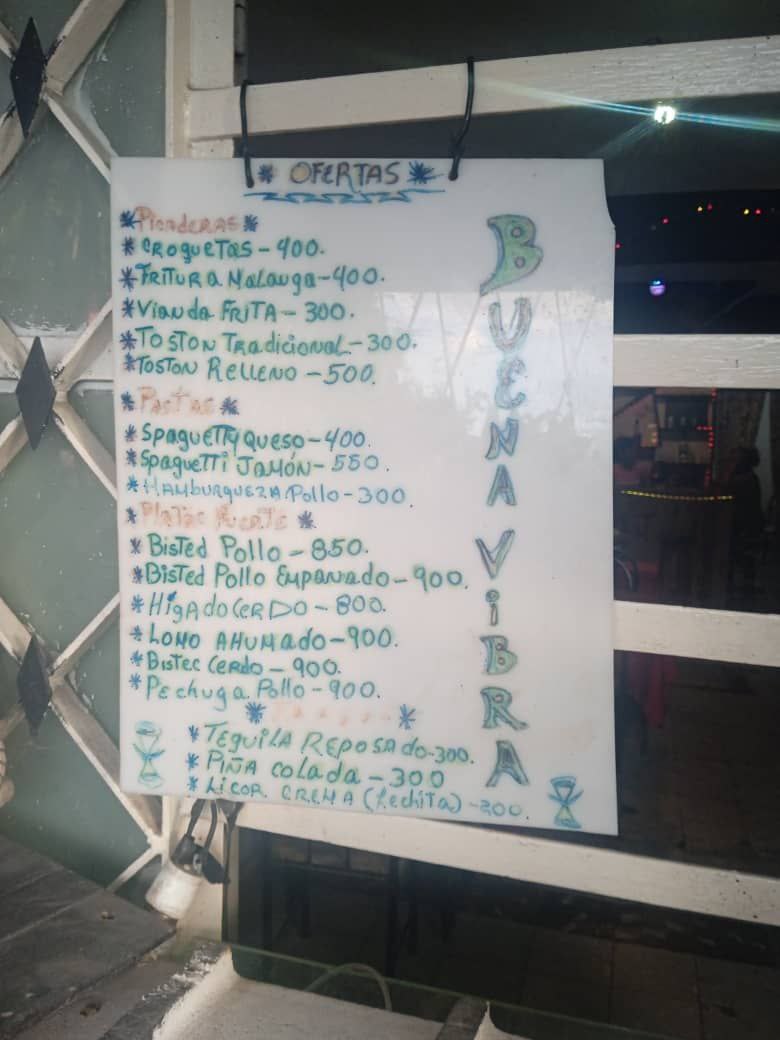 * OFERTAS *
* Picaderas *
* CROQUETAS - 400.
* FRITURA MALANGA - 400.
* VIANDA FRITA - 300.
* TOSTON TRADICIONAL - 300.
* TOSTON RELLENO - 500.
* PASTAS *
* SPAGUETTY QUESO - 400.
* SPAGUETTI JAMÓN - 550.
* HAMBURQUEZA POLLO - 300.
* PLATOS FUERTE *
* BISTED POLLO - 850.
* BISTED POLLO EMPANADO - 900.
* HÍGADO CERDO - 800.
* LOMO AHUMADO - 900.
* BISTEC CERDO - 900.
* PECHUGA POLLO - 900.
* TEQUILA REPOSADO - 300.
* PIÑA COLADA - 300
* LICOR CREMA (LECHITA) - 200.
BUENA VIBRA